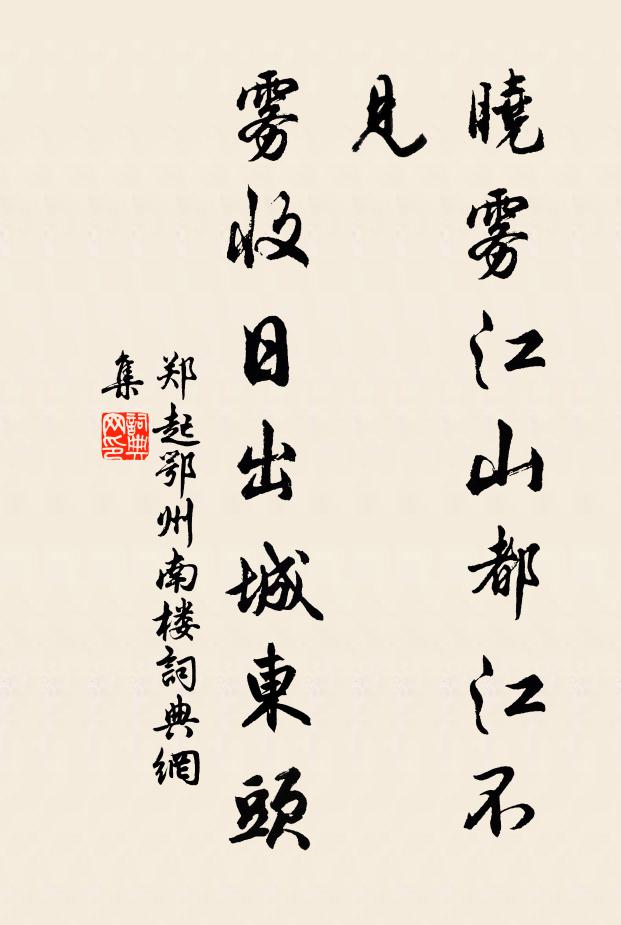 曉雾江山都江不
見
雾收日出城東頭
郑起鄂州南楼詞典網
集
詞典
网印